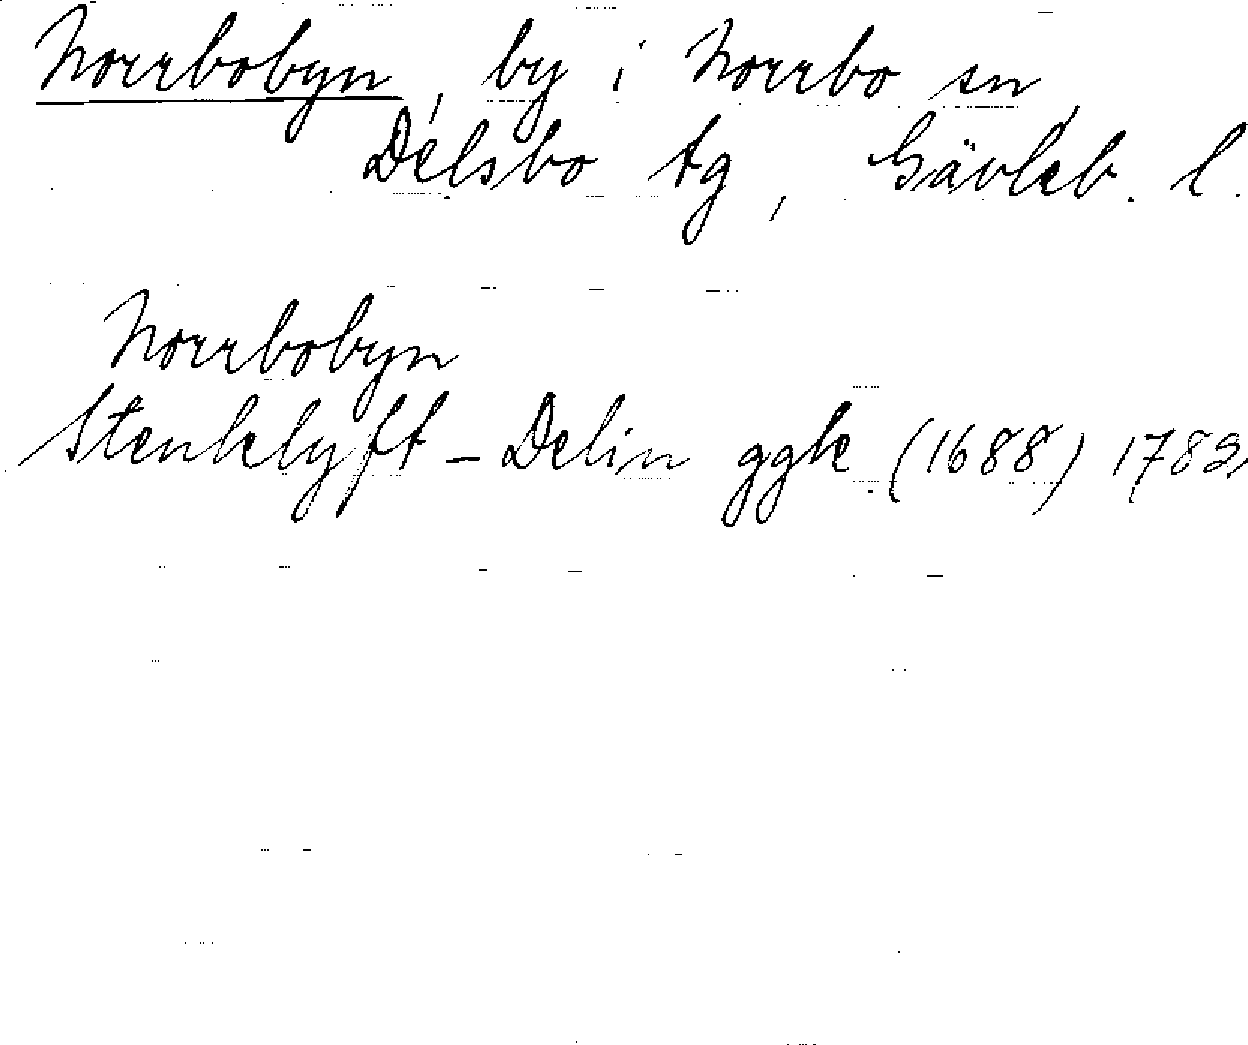 Norrbobyn, by i Norrbo sn,
Delsbo tg, Gävleb. l.
Norrbobyn
Stenklyft - Delin ggk (1688) 1783,